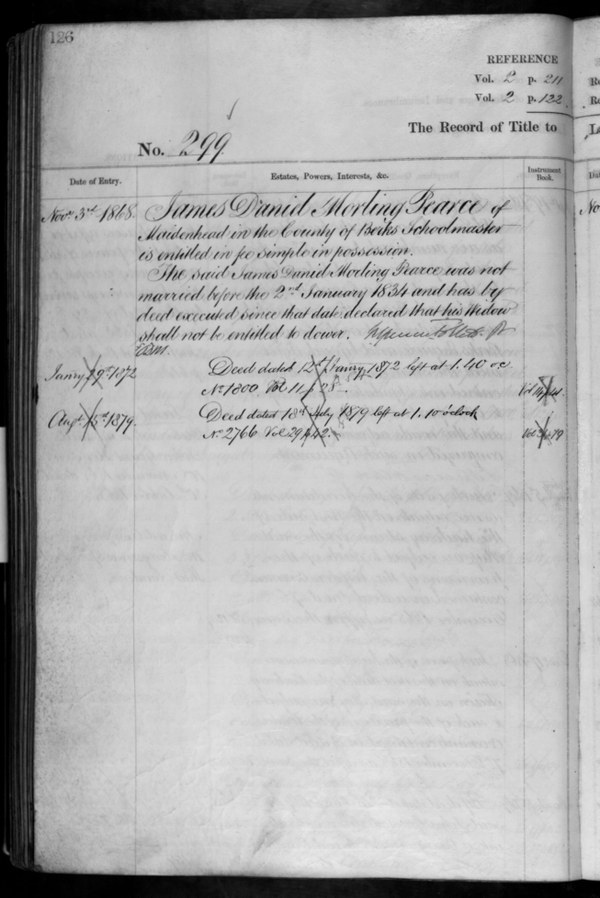 126
REFERENCE
Vol. 2 p. 211
Vol. 2 p. 122
The Record of Title to
No. 299
Date of Entry.
Estates, Powers, Interests, &c.
Instrument Book.
Novr 3rd 1868.
James Daniel Morling Pearce of
Maidenhead in the County of Berks Schoolmaster
is entitled in fee simple in possession.
The said James Daniel Morling Pearce was not
married before the 2nd January 1834 and has by
deed executed since that date declared that his Widow
shall not be entitled to dower.
Janry 29th 1872
Deed dated 12th Janry 1872 left at 1.40 o.c.
No 1800 Vol 11 p 28
Augt 15th 1879.
Deed dated 18th July 1879 left at 1.10 o'clock
No 2766 Vol 29 p 42